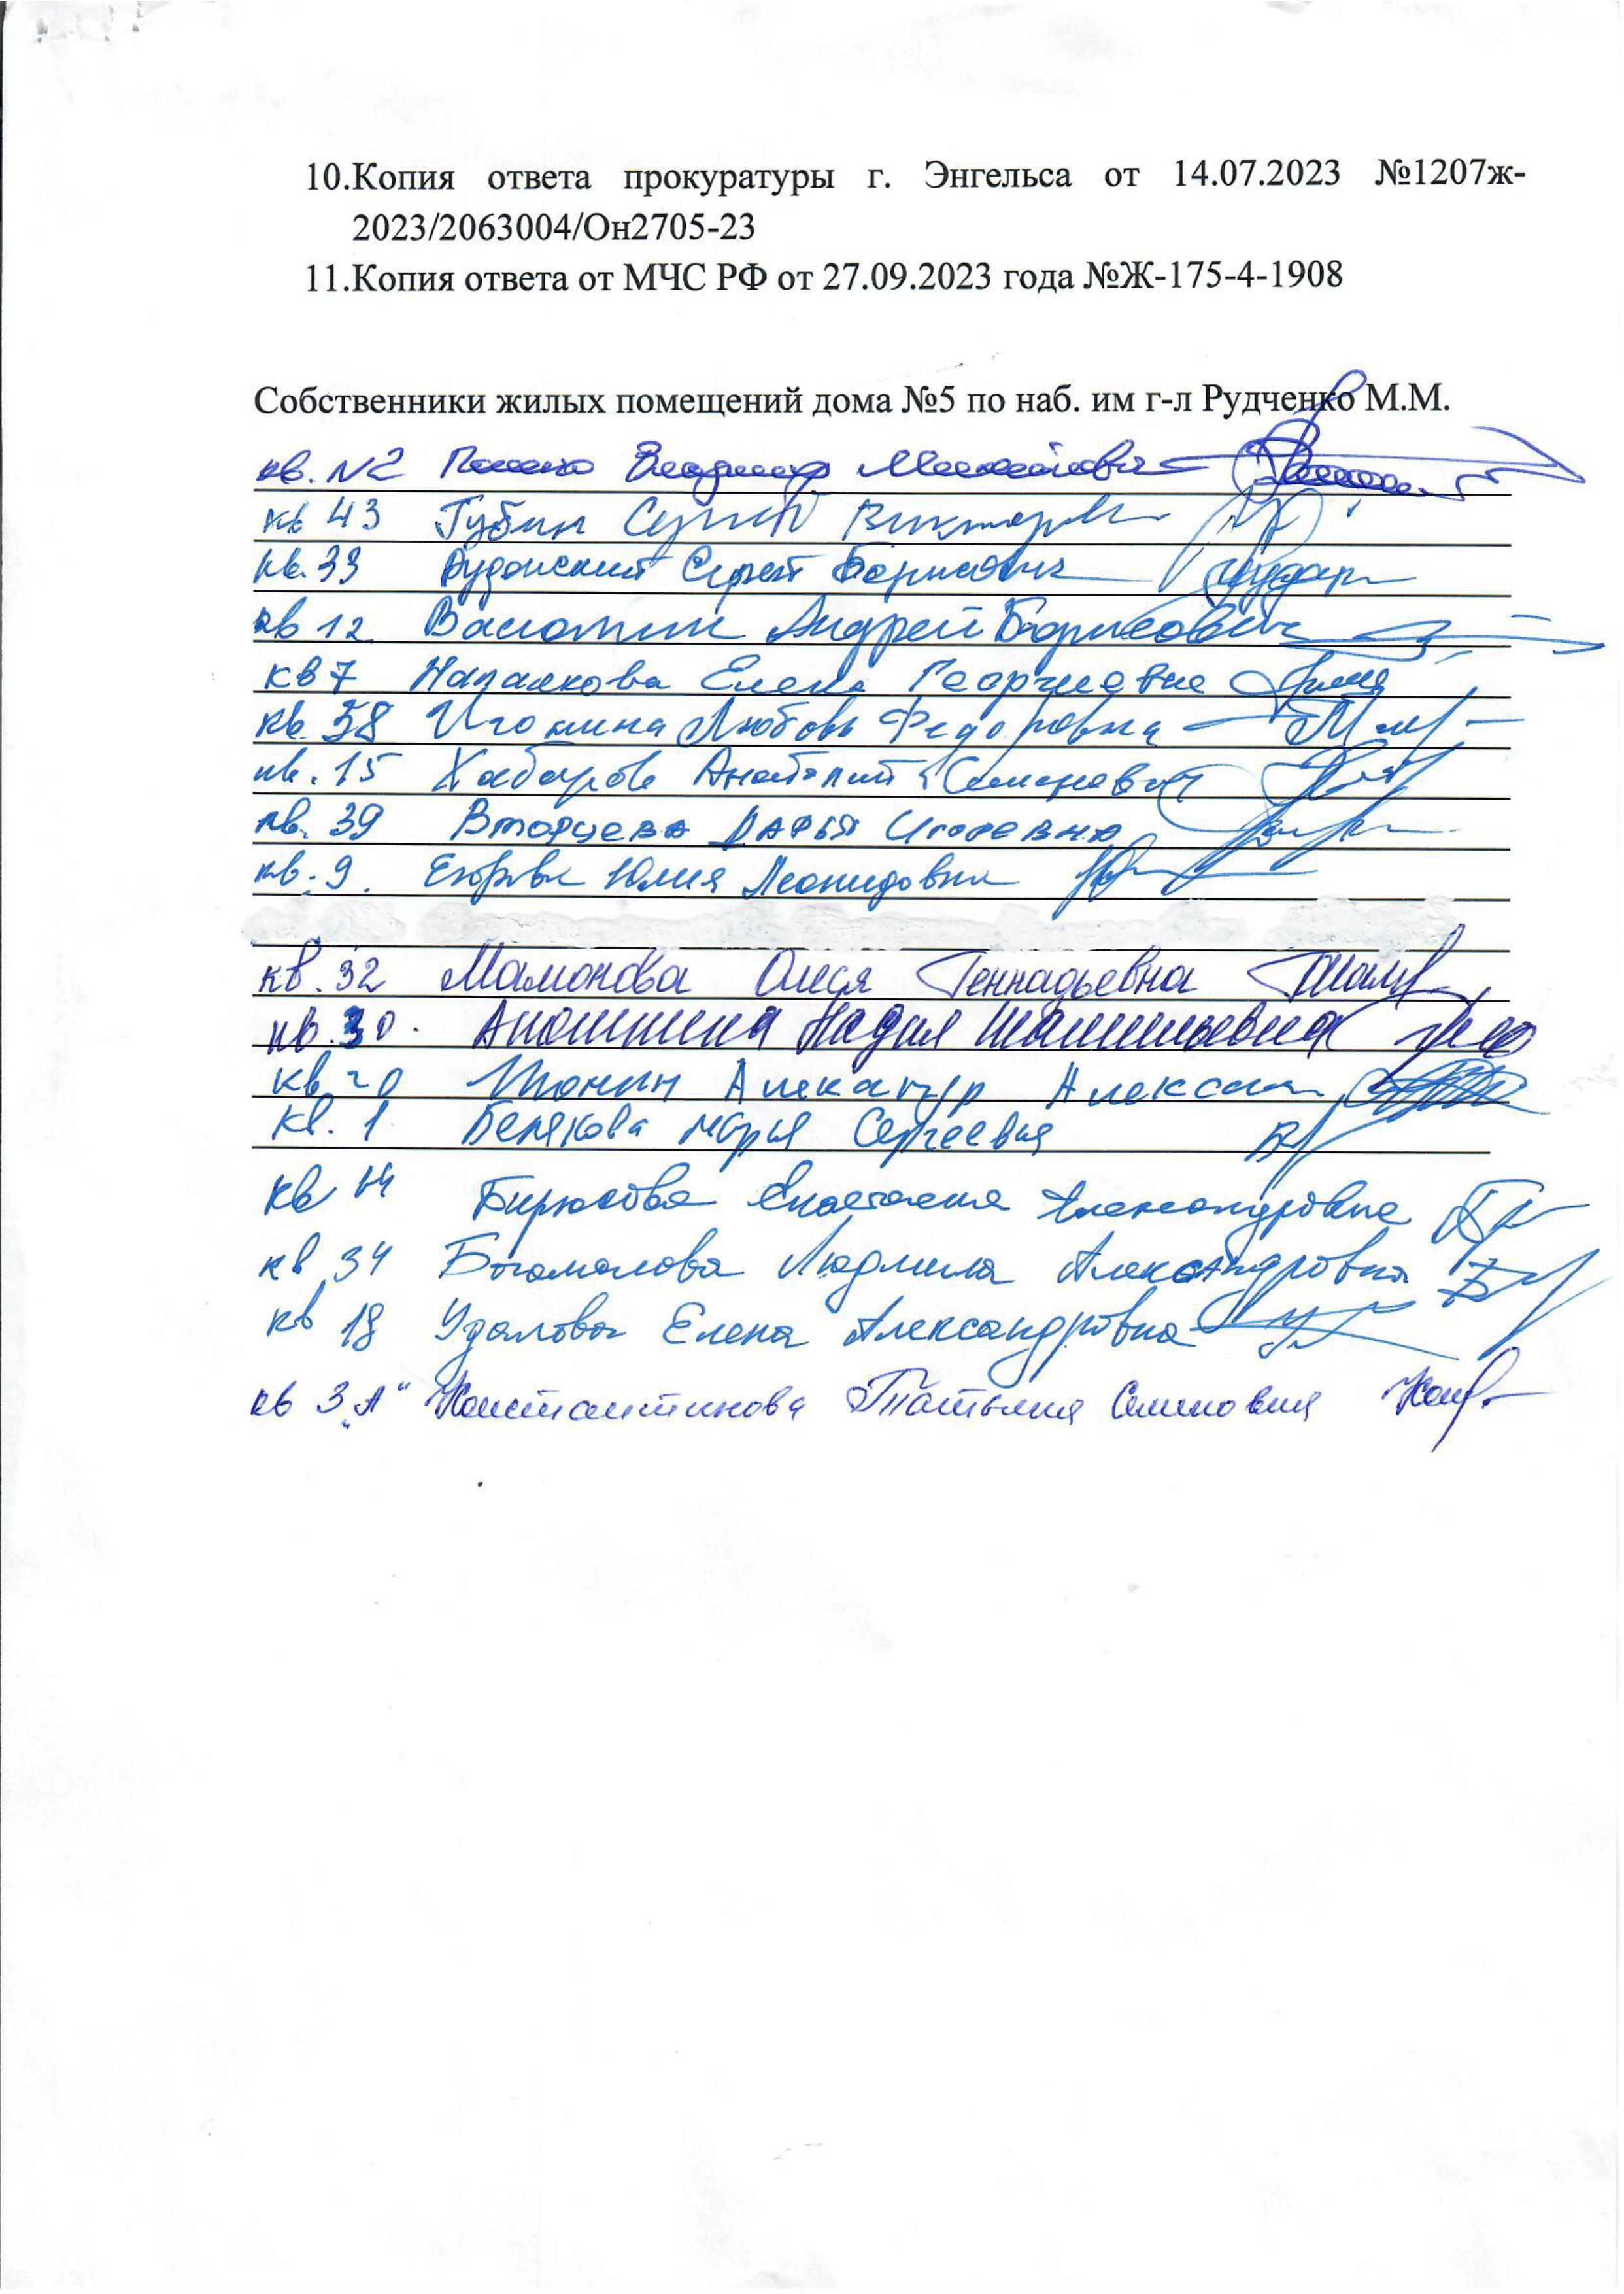 10.Копия ответа прокуратуры г. Энгельса от 14.07.2023 №1207ж-
2023/2063004/Он2705-23
11.Копия ответа от МЧС РФ от 27.09.2023 года №Ж-175-4-1908
Собственники жилых помещений дома №5 по наб. им г-л Рудченко М.М.
кв. N2 Владимир
кв 43 Губин Сергей Викторович
кв. 33 Сергей Борисович
кв 12 Андрей Борисович
кв 7 Напалкова Елена Георгиевна
кв. 38 Любовь Федоровна
кв. 15 Хабаров Анатолий Семенович
кв. 39 Вторцева Дарья Игоревна
кв. 9. Егорова Юлия Леонидовна
кв. 32 Мамонова Олеся Геннадьевна
кв. 30. Апошкина Надия
кв 20
кв. 1 Белякова Марья Сергеевна
кв Бирюкова Анастасия Александровна
кв 34 Богомолова Людмила Александровна
кв 18 Удалова Елена Александровна
кв 3 „А“ Константинова Татьяна Семеновна